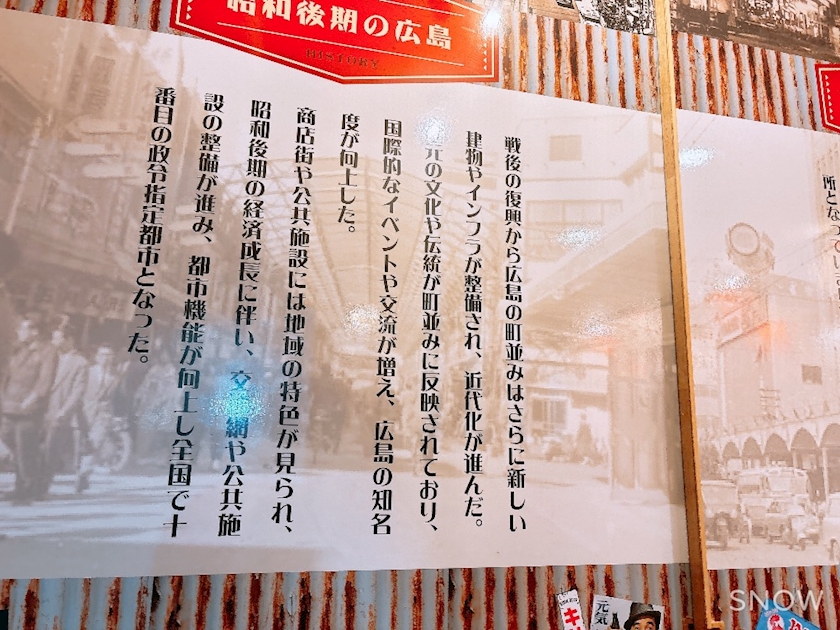 昭和後期の広島
HISTORY
戦後の復興から広島の町並みはさらに新しい
建物やインフラが整備され、近代化が進んだ。
元の文化や伝統が町並みに反映されており、
国際的なイベントや交流が増え、広島の知名
度が向上した。
商店街や公共施設には地域の特色が見られ、
昭和後期の経済成長に伴い、交通網や公共施
設の整備が進み、都市機能が向上し全国で十
番目の政令指定都市となった。
元気
SNOW